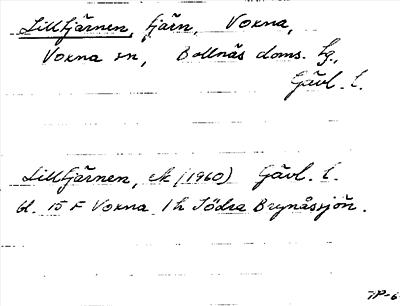 Lilltjärnen, tjärn, Voxna,
Voxna sn, Bollnäs doms. hg.,
Gävl. l.
Lilltjärnen, ek (1960) Gävl. l.
bl. 15 F Voxna 1 h Södra Brynåssjön.